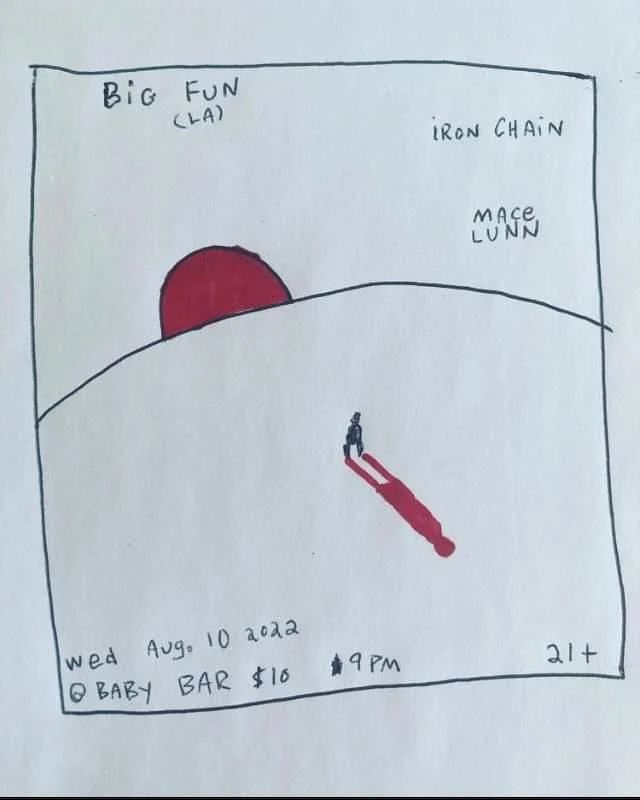 BiG FUN
(LA)
iRON CHAiN
MACe
LUNN
wed Aug. 10 2022
@ BABY BAR $10 9 PM
21+